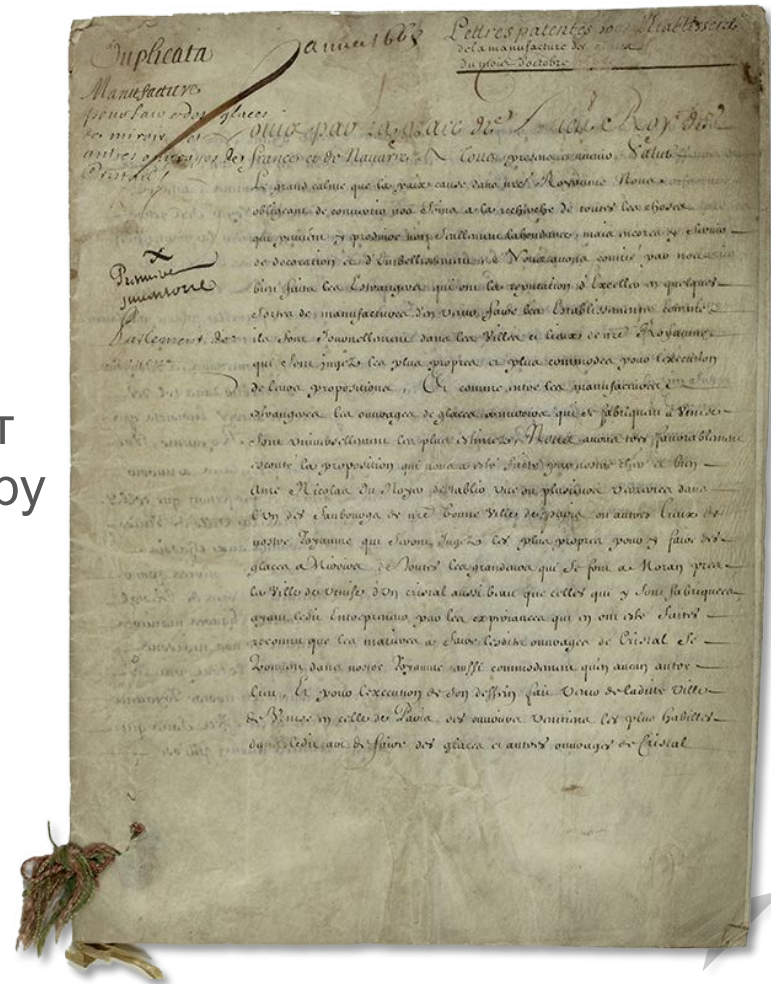 Duplicata
année 1665
Lettres patentes pour l'Etablissemt
de la manufacture des glaces
du mois d'octobre
Manufacture
pour faire des glaces
de miroir et
autres ouvrages de
Cristail
Louis par la grace de Dieu Roy de
france et de Navarre A tous presens et avenir Salut
Le grand calme que la paix cause dans nre Royaume Nous
obligeant de convertir nos soins a la recherche de toutes les choses
qui peuvent y produire non seullement labondance, mais encores y servir
de decoration et d'Embellissement, Nous avons convié par nos
bien faits les Estrangers qui ont la reputation d'Exceller en quelques
sortes de manufactures d'en venir faire les Establissemens comme
ils font Journellement dans les Villes et lieux de nre Royaume
qui sont jugéz les plus propres et plus commodes pour l'execution
de leurs propositions, Et comme entre les manufactures
estrangeres les ouvrages de glaces a miroirs qui se fabriquent a Venise
sont universellement les plus estiméz, Nous avons tres favorablement
escouté la proposition qui nous a esté faite par nostre cher et bien
Amé Nicolas du Noyer d'establir une ou plusieurs Verreries dans
l'Un des faubourgs de nre bonne Ville de paris ou autres lieux de
nostre Royaume qui seront Jugéz les plus propres pour y faire des
glaces a Miroirs de Toutes les grandeurs qui se font a Moran pres
la Ville de Venise, d'Un cristal aussi beau que celles qui y sont fabriquées
ayant ledit Entrepreneur par les experiances qui en ont esté faites
reconnu que les matieres a faire lesdits ouvrages de Cristal se
Trouvent dans nostre Royaume aussi commodement qu'en aucun autre
lieu, Et pour l'execution de son dessein fait venir de ladite Ville
de Venise en celle de Paris des ouvriers Venitiens les plus habilles
dans ledit art de faire des glaces et autres ouvrages de Cristal
Premiere
Parlement de
т
ру